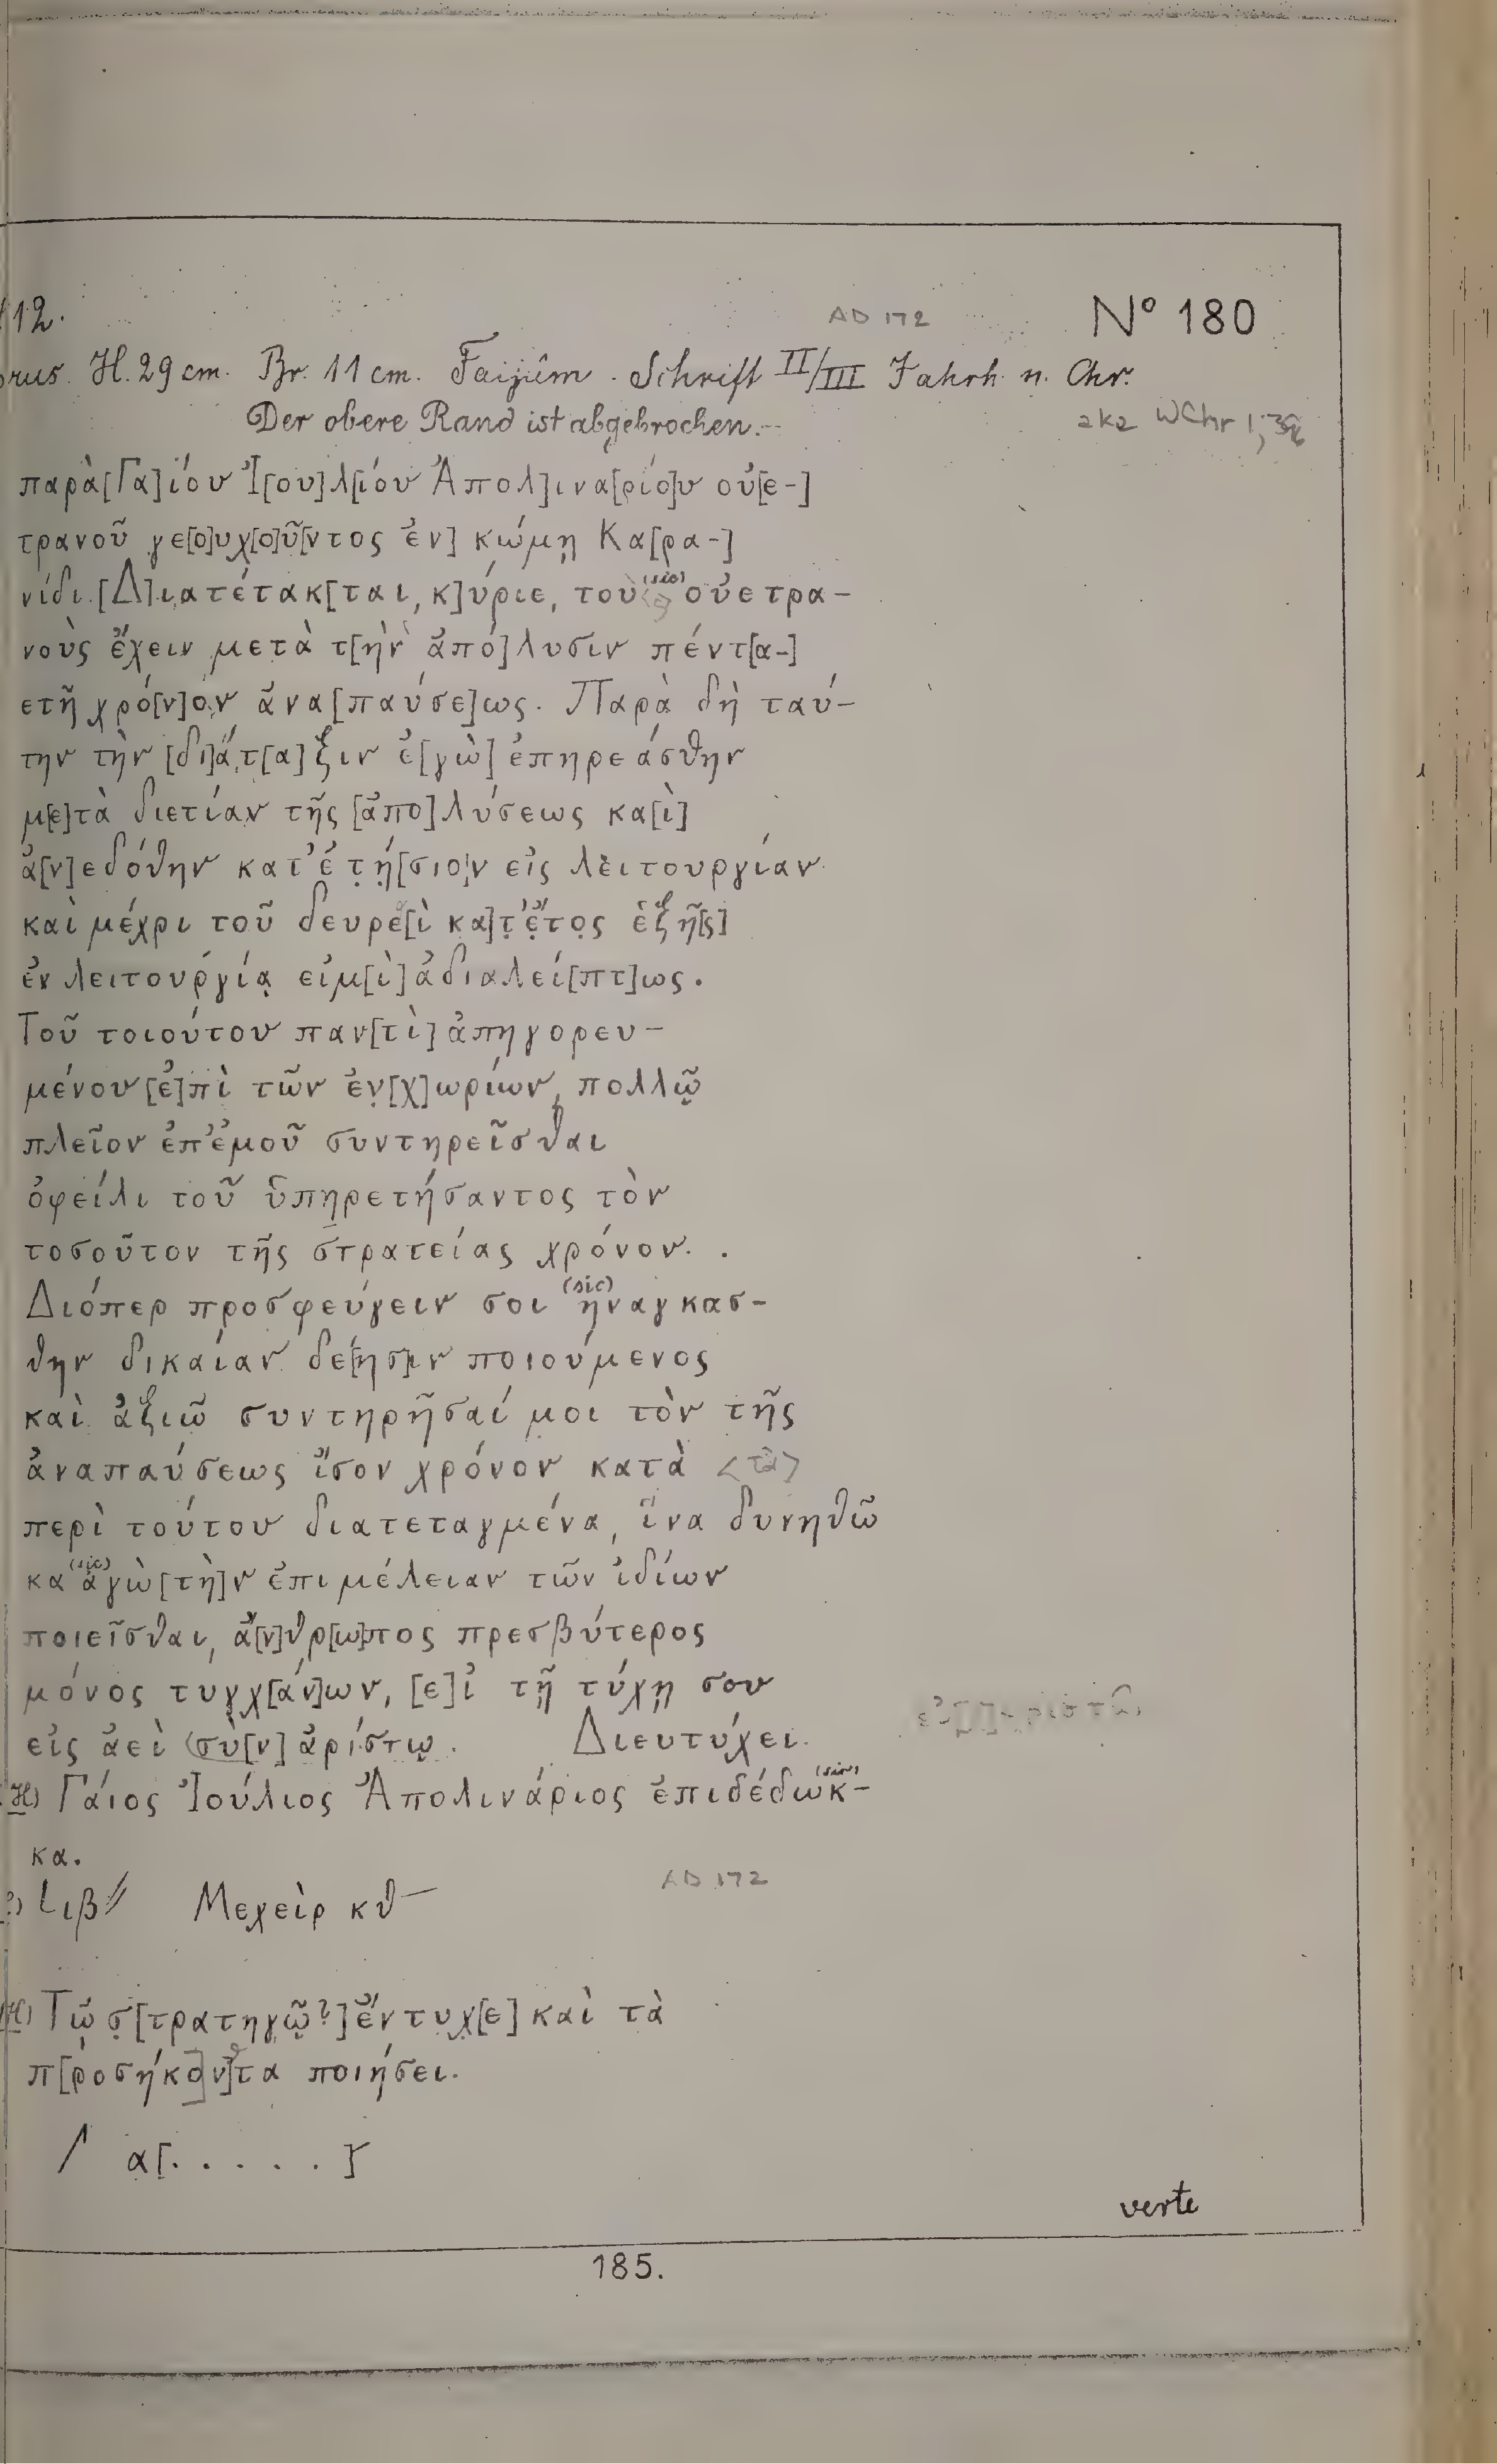 12. AD 172 Nº 180
rus. H. 29 cm. Br. 11 cm. Faijûm. Schrift II/III Jahrh. n. Chr.
Der obere Rand ist abgebrochen.- aka WChr 1,
παρὰ[Γα]ίου Ἰ[ου]λ[ίου Ἀπολ]ινα[ρίο]υ οὐ[ε-]
τρανοῦ γε[ο]υχ[ο]ῦ[ντος ἐν] κώμῃ Κα[ρα-]
νίδι. [Δ]ιατέτακ[ται, κ]ύριε, τοὺ (sic) οὐετρα-
νοὺς ἔχειν μετὰ τ[ὴν ἀπό]λυσιν πέντ[α-]
ετῆ χρό[ν]ον ἀνα[παύσε]ως. Παρὰ δὴ ταύ-
την τὴν [δι]άτ[α]ξιν ἐ[γὼ] ἐπηρεάσθην
μ[ε]τὰ διετίαν τῆς [ἀπο]λύσεως κα[ὶ]
ἀ[ν]εδόθην κατ' ἐτ̣ή̣[σιο]ν εἰς λειτουργίαν
καὶ μέχρι τοῦ δευρε[ὶ κα]τ̣' ἔ̣το̣ς ἑξῆ[ς]
ἐν λειτουργίᾳ εἰμ[ὶ] ἀδιαλεί[πτ]ως.
Τοῦ τοιούτου παν[τὶ] ἀπηγορευ-
μένου [ἐ]πὶ τῶν ἐν̣[χ]ωρίων, πολλῷ
πλεῖον ἐπ' ἐμοῦ συντηρεῖσθαι
ὀφείλι τοῦ ὑπηρετήσαντος τὸν
τοσοῦτον τῆς στρατείας χρόνον.
Διόπερ προσφεύγειν σοι (sic) ἠναγκασ-
θην δικαίαν δέ[ησ]ιν ποιούμενος
καὶ ἀξιῶ συντηρῆσαί μοι τὸν τῆς
ἀναπαύσεως ἴσον χρόνον κατὰ <τὰ>
περὶ τούτου διατεταγμένα, ἵνα δυνηθῶ
κα (sic) ἀγὼ [τὴ]ν ἐπιμέλειαν τῶν ἰδίων
ποιεῖσθαι, ἄ[ν]θρ[ω]πος πρεσβύτερος
μόνος τυγχ[άν]ων, [ε]ἰ τῇ τύχῃ σου
εἰς ἀεὶ σὺ[ν] ἀρίστῳ. Διευτύχει.
H) Γάιος Ἰούλιος Ἀπολινάριος ἐπιδέδωκ- (sic)
κα.
Lιβ// Μεχεὶρ κθ AD 172
H) Τῷ σ̣[τρατηγῷ?] ἔντυχ[ε] καὶ τὰ
π[ροσήκον]τα ποιήσει.
/ α[. . . . . ]
verte
185.